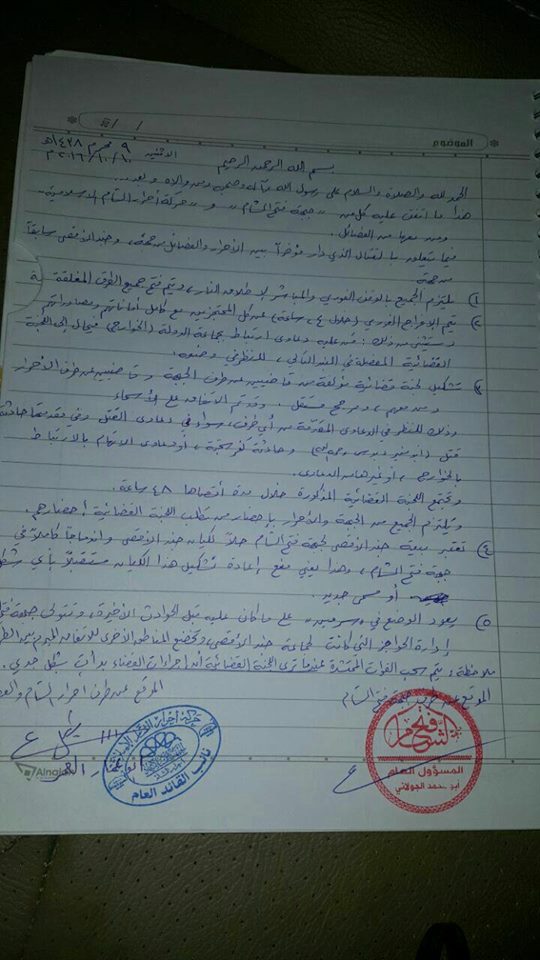 الموضوع
/ /
الاثنين ٩ محرم ١٤٣٨هـ
٢٠١٦/١٠/١٠م
بسم الله الرحمن الرحيم
الحمد لله والصلاة والسلام على رسول الله وآله وصحبه ومن والاه وبعد..
هذا ما اتفق عليه كل من "جبهة فتح الشام" و "حركة أحرار الشام الإسلامية"
ومن معها من الفصائل.
فيما يتعلق بالقتال الذي دار مؤخراً بين الأحرار والفصائل من جهة، وجند الأقصى سابقاً
من جهة
١) يلتزم الجميع بالوقف الفوري والمباشر لإطلاق النار، ويتم فتح جميع الطرق المغلقة
٢) يتم الإفراج الفوري (خلال ٢٤ ساعة) عن كل المحتجزين مع كامل أماناتهم ومصادراتهم
ويستثنى من ذلك: من عليه دعاوى ارتباط بجماعة الدولة (الخوارج) فيحال إلى اللجنة
القضائية المفصلة في البند التالي، للنظر في وضعه.
٣) تشكيل لجنة قضائية مؤلفة من قاضيين من طرف الجبهة وقاضيين من طرف الأحرار
ومن معهم، ومرجح مستقل. وقد تم الاتفاق على الأسماء
وذلك للنظر في الدعاوى المقدمة من أي طرف، سواء في دعاوى القتل وفي مقدمتها حادثة
قتل (أبو منير دبوس رحمه الله) وحادثة كفر سجنة، أو دعاوى الاتهام بالارتباط
بالخوارج، أو غيرها من الدعاوى.
وتجتمع اللجنة القضائية المذكورة خلال مدة أقصاها ٤٨ ساعة.
ويلتزم الجميع من الجبهة والأحرار بإحضار من تطلب اللجنة القضائية إحضارهم.
٤) تعتبر بيعة جند الأقصى لجبهة فتح الشام حلاً لكيان جند الأقصى واندماجاً كاملاً في
جبهة فتح الشام، وهذا يعني منع إعادة تشكيل هذا الكيان مستقبلاً بأي شكل
أو مسمى جديد.
٥) يعود الوضع في "سرمين" على ما كان عليه قبل الحوادث الأخيرة، وتتولى جبهة فتح
إدارة الحواجز التي كانت لجماعة جند الأقصى، وتخضع المناطق الأخرى للاتفاق المبرم بين
ملاحظة: يتم سحب القوات المحتشدة عندما ترى اللجنة القضائية أن إجراءات القضاء بدأت بشكل جدي.
الموقع عن طرف جبهة فتح الشام
الموقع عن طرف أحرار الشام
فتح الشام
المسؤول العام
أبو محمد الجولاني
حركة أحرار الشام الإسلامية
نائب القائد العام